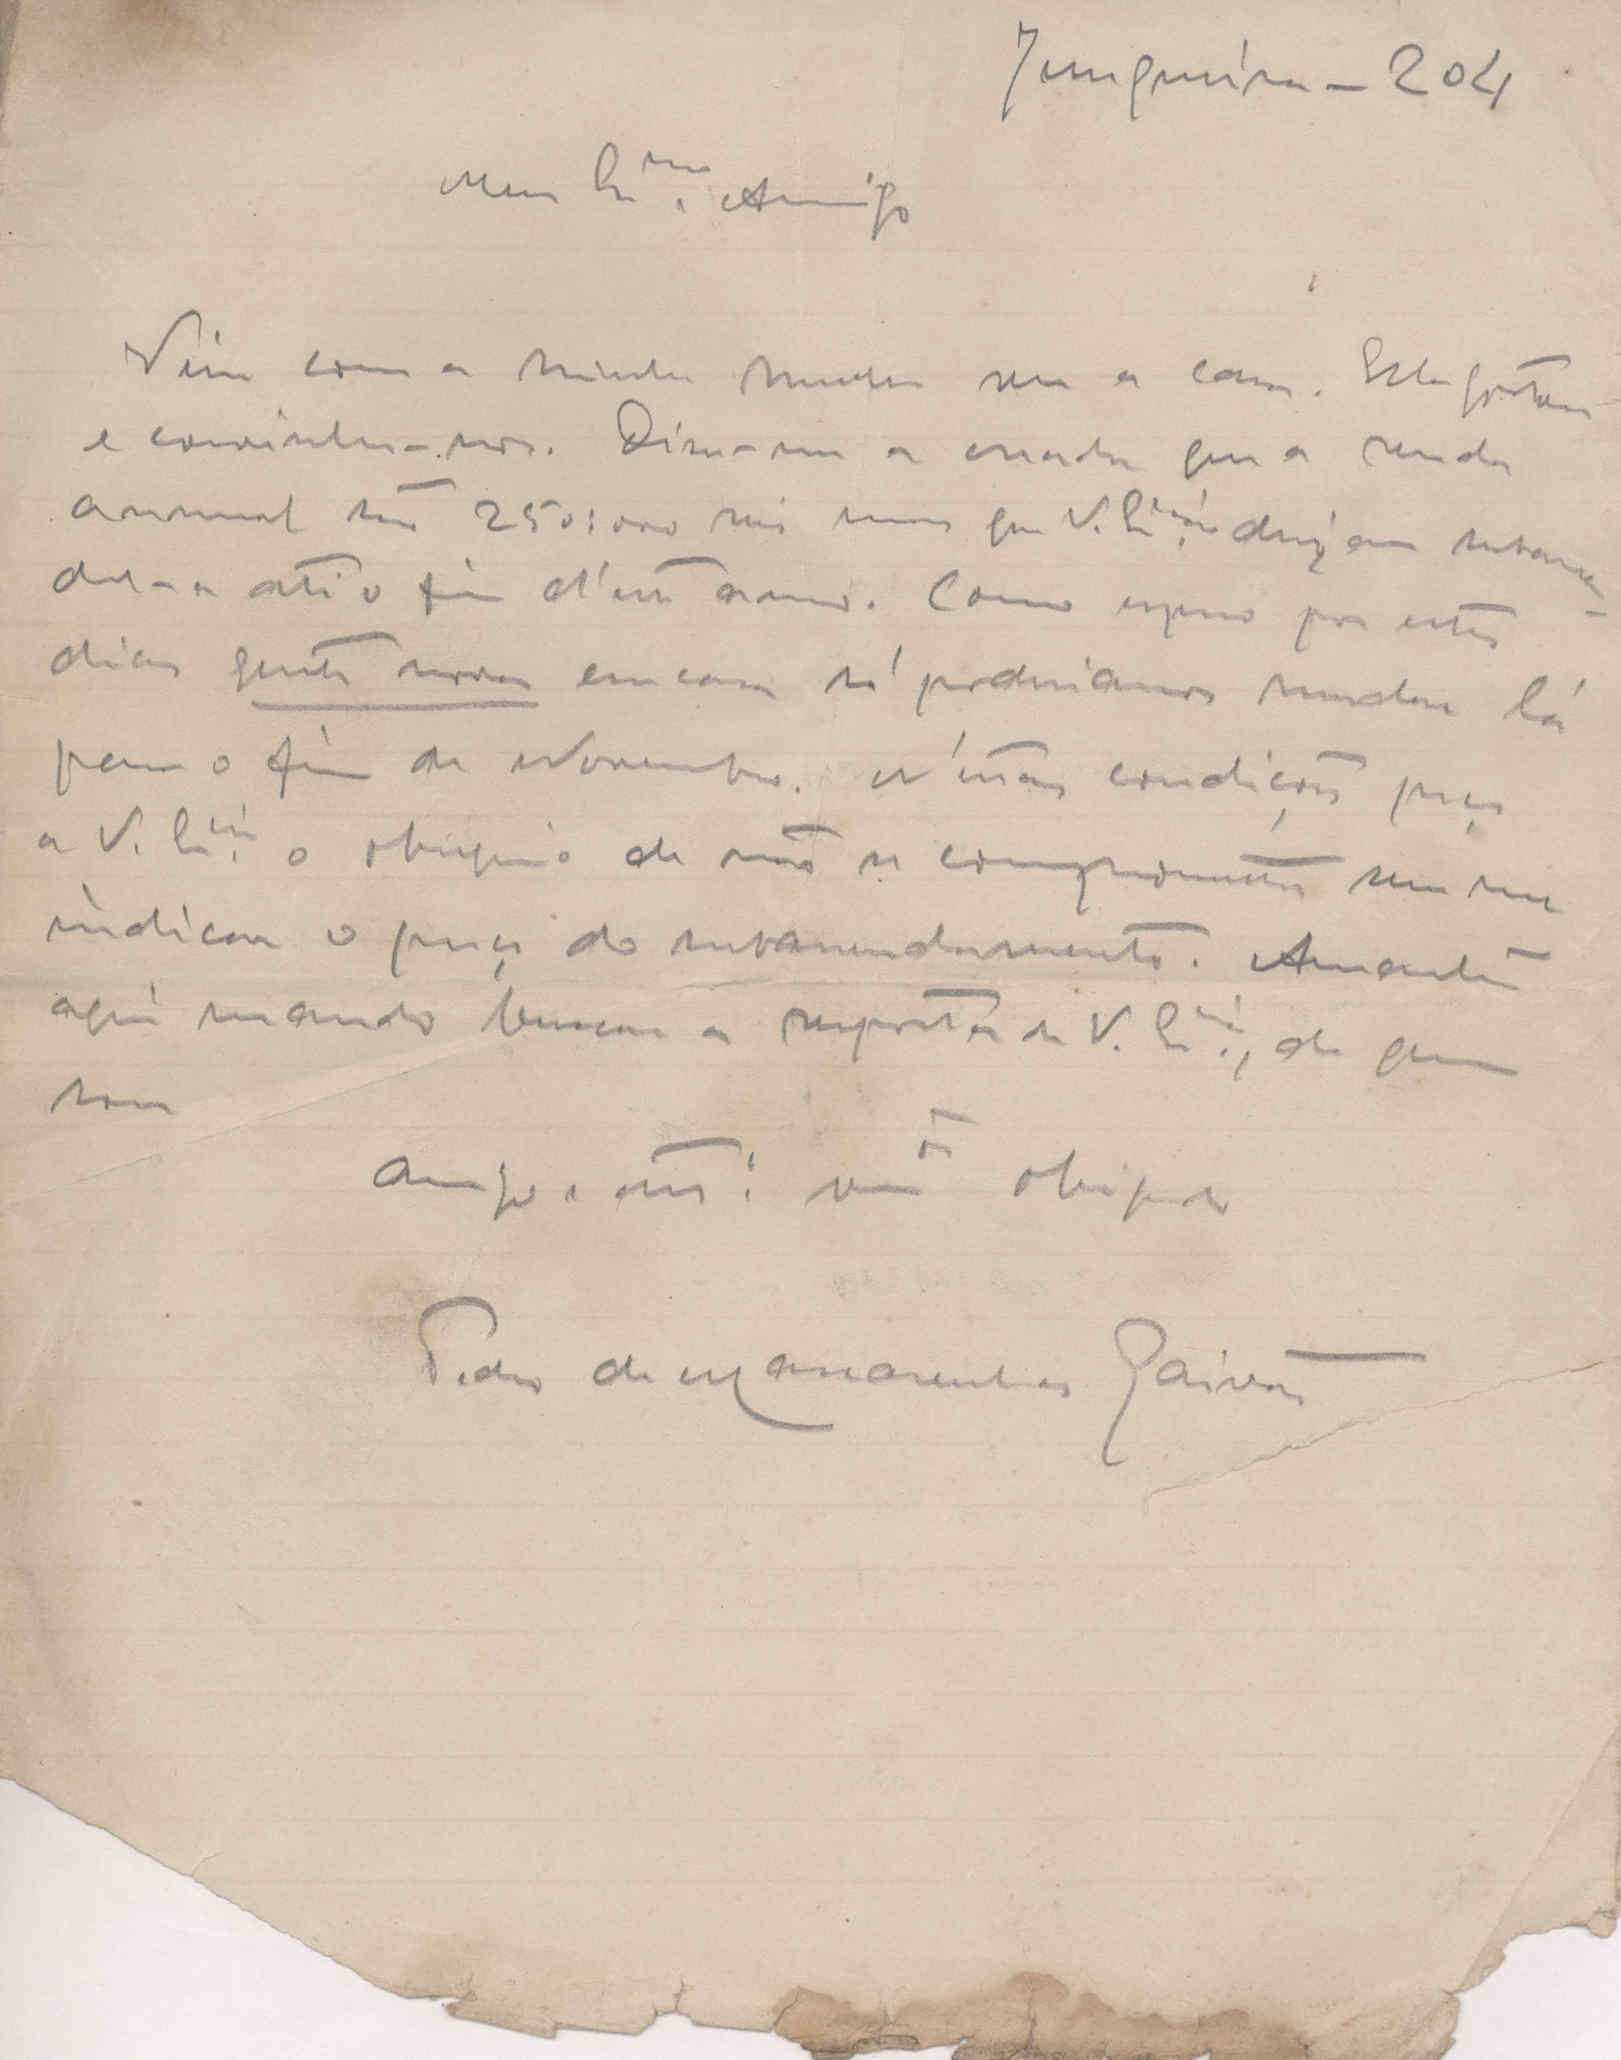 Junqueira - 204
Meu Ex.mo Amigo
Vim com a minha mulher ver a casa. Ella gostou
e convinha-nos. Disse-me a creada que a renda
annual são 250:000 reis mas que V. Ex.cia desejam subarren-
dal-a até o fim d'este anno. Como espero por estes
dias gente nova em casa só poderiamos mudar lá
para o fim de Novembro. N'estas condições peço
a V. Ex.cia o obsequio de não se comprometter sem me
indicar o preço do subarrendamento. Amanhã
aqui mando buscar a resposta de V. Ex.cia, de quem
sou
amigo e att.º obrigado
Pedro de Mascarenhas Gaivão